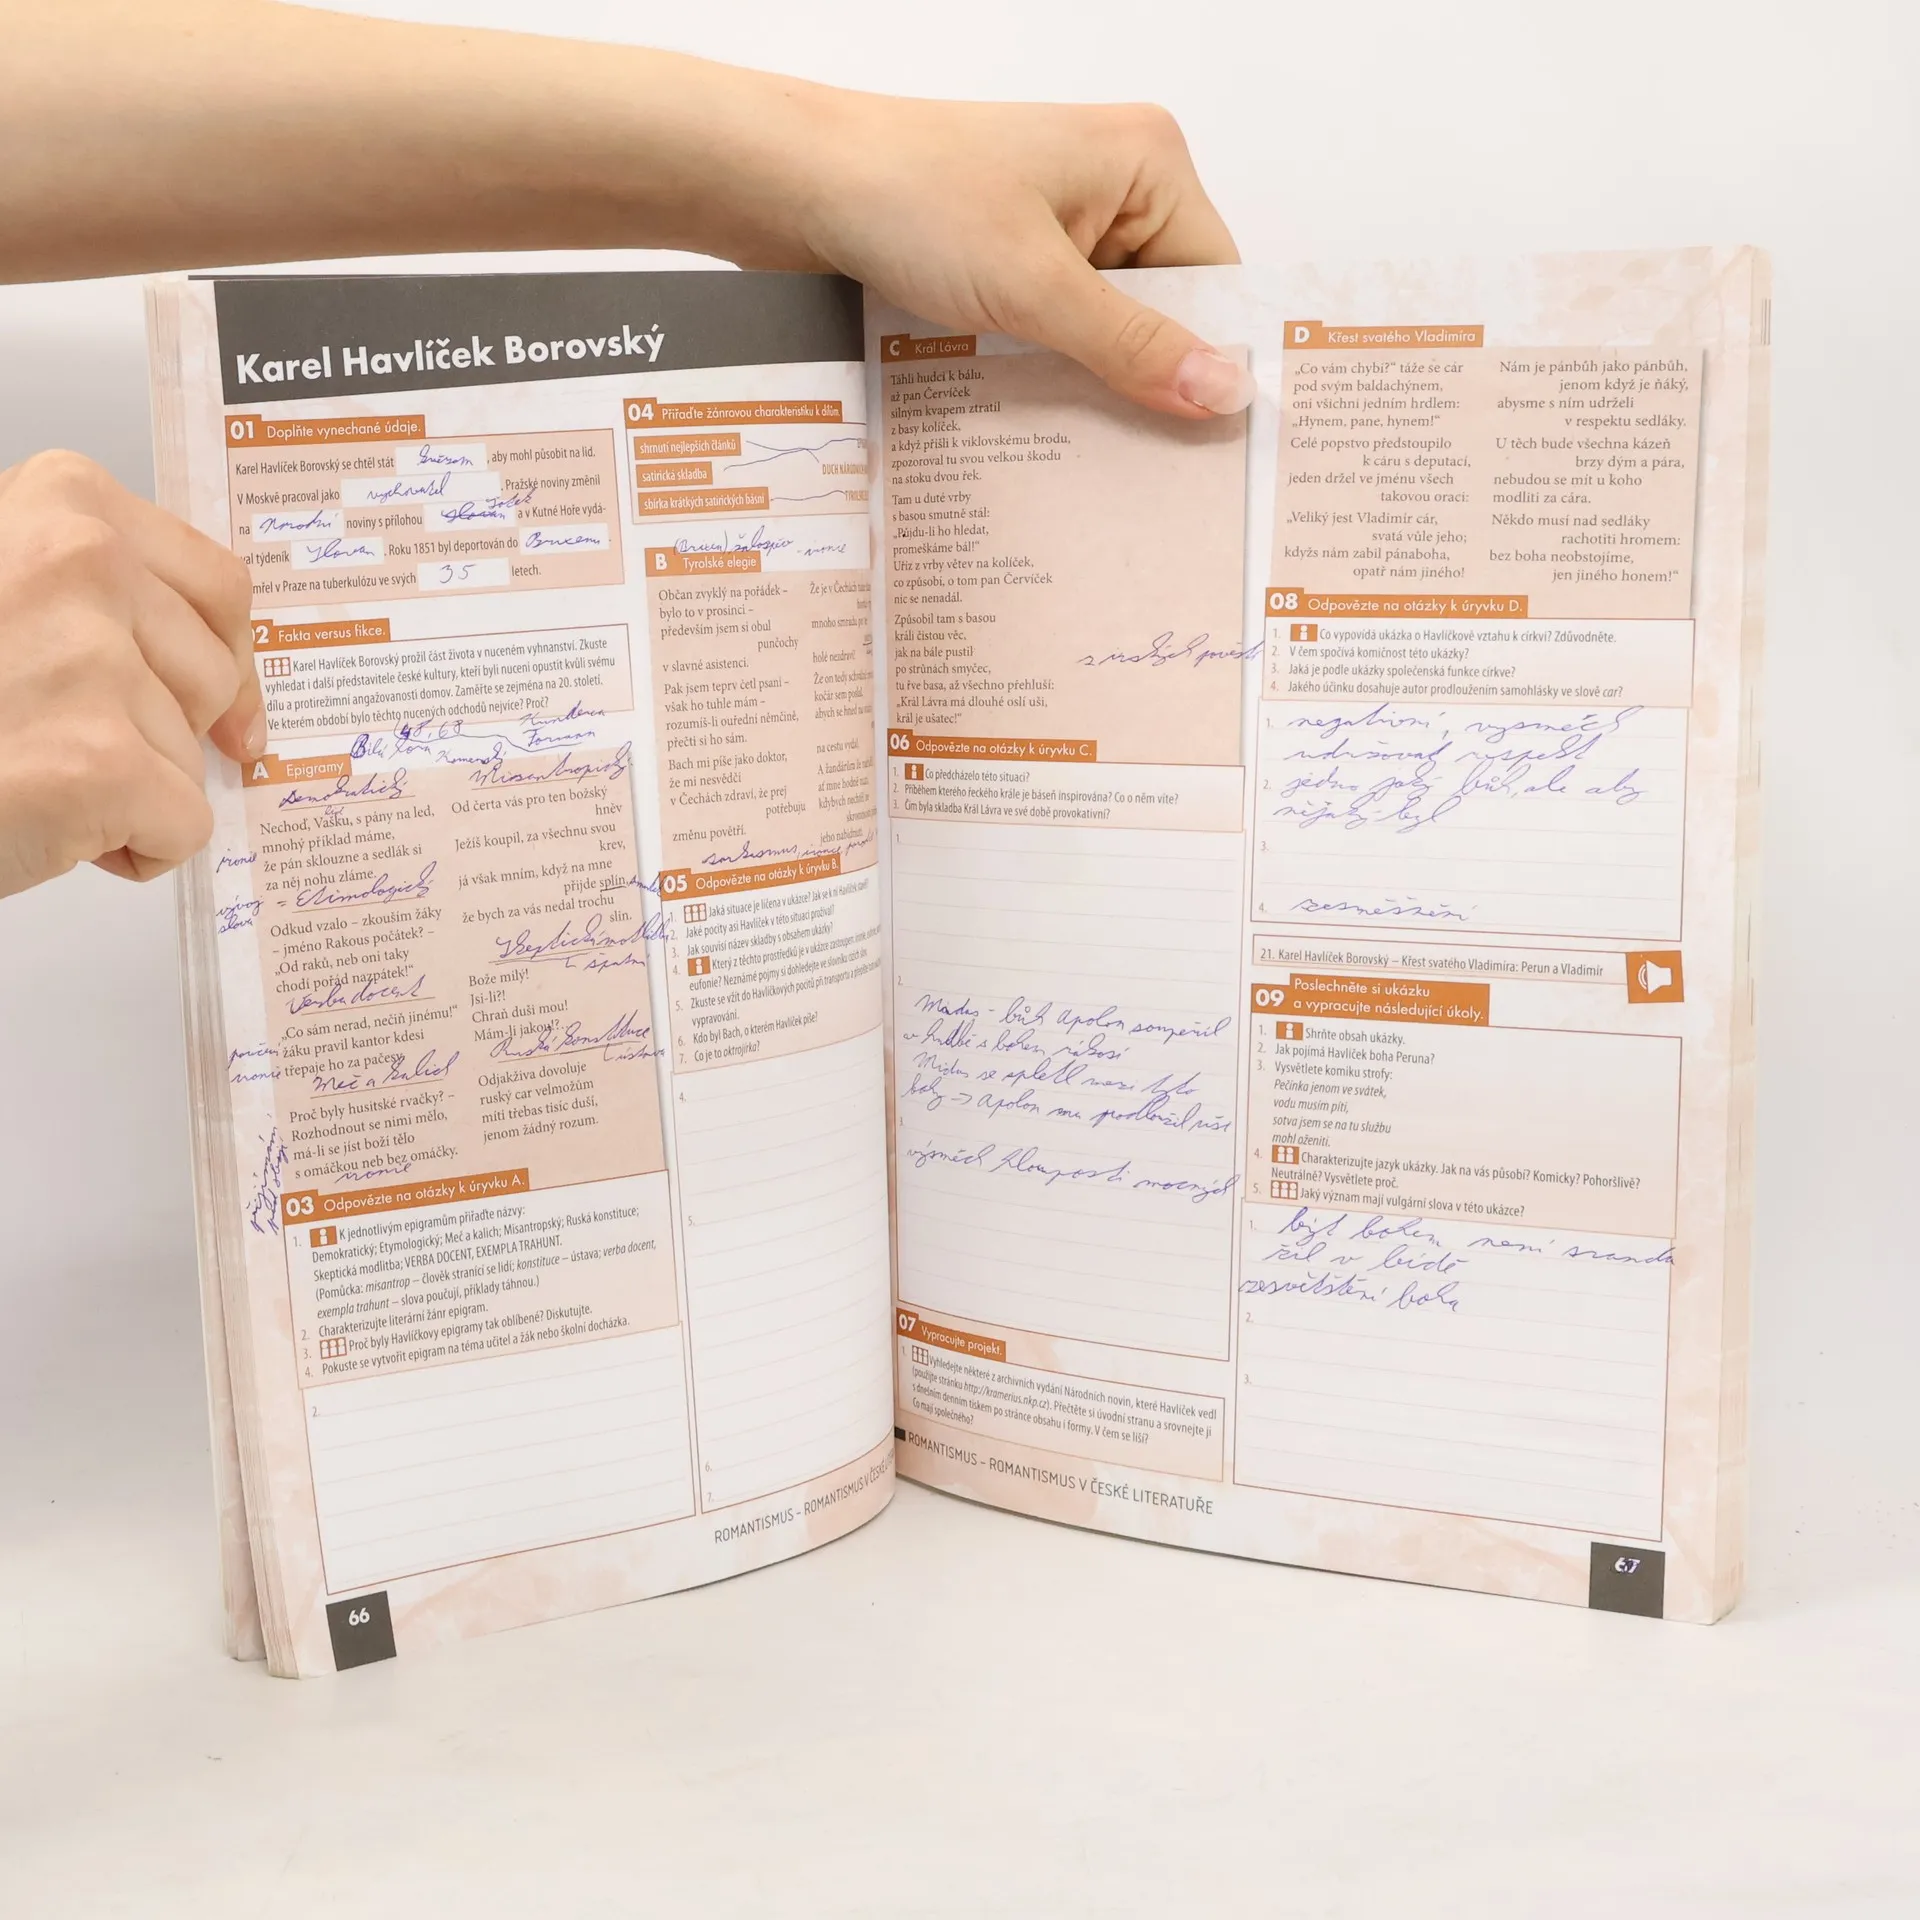 Karel Havlíček Borovský
01 Doplňte vynechané údaje.
Karel Havlíček Borovský se chtěl stát knězem, aby mohl působit na lid.
V Moskvě pracoval jako vychovatel. Pražské noviny změnil
na Národní noviny s přílohou Slovan Šotek a v Kutné Hoře vydá-
val týdeník Slovan. Roku 1851 byl deportován do Brixenu.
mřel v Praze na tuberkulózu ve svých 35 letech.
02 Fakta versus fikce.
Karel Havlíček Borovský prožil část života v nuceném vyhnanství. Zkuste
vyhledat i další představitele české kultury, kteří byli nuceni opustit kvůli svému
dílu a protirežimní angažovanosti domov. Zaměřte se zejména na 20. století.
Ve kterém období bylo těchto nucených odchodů nejvíce? Proč?
48, 68 Kundera
Bílá hora Komenský Forman
A Epigramy
Demokratický
Nechoď, Vašku, s pány na led,
mnohý příklad máme,
že pán sklouzne a sedlák si
za něj nohu zláme.
ironie
= Etimologický
vývoj
slova
Odkud vzalo – zkouším žáky
– jméno Rakous počátek? –
„Od raků, neb oni taky
chodí pořád nazpátek!“
Verba docent
„Co sám nerad, nečiň jinému!“
žáku pravil kantor kdesi
třepaje ho za pačesy.
poučení
ironie
Meč a kalich
Proč byly husitské rvačky? –
Rozhodnout se nimi mělo,
má-li se jíst boží tělo
s omáčkou neb bez omáčky.
ironie
Misantropický
Od čerta vás pro ten božský
hněv
Ježíš koupil, za všechnu svou
krev,
já však mním, když na mne
přijde splín,
že bych za vás nedal trochu
slin.
Skeptická modlitba
špatní
Bože milý!
Jsi-li?!
Chraň duši mou!
Mám-li jakou!?
Ruská konstituce
ústava
Odjakživa dovoluje
ruský car velmožům
míti třebas tisíc duší,
jenom žádný rozum.
03 Odpovězte na otázky k úryvku A.
1. K jednotlivým epigramům přiřaďte názvy:
Demokratický; Etymologický; Meč a kalich; Misantropský; Ruská konstituce;
Skeptická modlitba; VERBA DOCENT, EXEMPLA TRAHUNT.
(Pomůcka: misantrop – člověk stranící se lidí; konstituce – ústava; verba docent,
exempla trahunt – slova poučují, příklady táhnou.)
2. Charakterizujte literární žánr epigram.
3. Proč byly Havlíčkovy epigramy tak oblíbené? Diskutujte.
4. Pokuste se vytvořit epigram na téma učitel a žák nebo školní docházka.
2.
66
04 Přiřaďte žánrovou charakteristiku k dílům.
shrnutí nejlepších článků
satirická skladba
DUCH NÁRODNÍCH
sbírka krátkých satirických básní
(Brixen) žalozpěv - ironie
B Tyrolské elegie
Občan zvyklý na pořádek –
bylo to v prosinci –
především jsem si obul
punčochy
v slavné asistenci.
Pak jsem teprv četl psaní –
však ho tuhle mám –
rozumíš-li ouřední němčině,
přečti si ho sám.
Bach mi píše jako doktor,
že mi nesvědčí
v Čechách zdraví, že prej
potřebu
změnu povětří.
Že je v Čechách
mnoho smradu
holé nezdraví
Že on tedy
kočár sem poslal,
abych se hned
na cestu vydal.
A žandárům
ať mne hodně
kdybych nechtěl
jeho nabídnutí.
sarkasmus, ironie
05 Odpovězte na otázky k úryvku B.
1. Jaká situace je líčena v ukázce? Jak se k ní Havlíček staví?
2. Jaké pocity asi Havlíček v této situaci prožíval?
3. Jak souvisí název skladby s obsahem ukázky?
4. Který z těchto prostředků je v ukázce zastoupen:
eufonie? Neznámé pojmy si dohledejte ve slovníku cizích slov.
5. Zkuste se vžít do Havlíčkových pocitů při transportu a
vypravování.
6. Kdo byl Bach, o kterém Havlíček píše?
7. Co je to oktrojírka?
4.
5.
6.
7.
ROMANTISMUS – ROMANTISMUS V ČESKÉ
C Král Lávra
Táhli hudci k bálu,
až pan Červíček
silným kvapem ztratil
z basy kolíček,
a když přišli k viklovskému brodu,
zpozoroval tu svou velkou škodu
na stoku dvou řek.
Tam u duté vrby
s basou smutně stál:
„Půjdu-li ho hledat,
promeškáme bál!“
Uříz z vrby větev na kolíček,
co způsobí, o tom pan Červíček
nic se nenadál.
Způsobil tam s basou
králi čistou věc,
jak na bále pustil
po strůnách smyčec,
tu řve basa, až všechno přehluší:
„Král Lávra má dlouhé oslí uši,
král je ušatec!“
z irských pověstí
06 Odpovězte na otázky k úryvku C.
1. Co předcházelo této situaci?
2. Příběhem kterého řeckého krále je báseň inspirována? Co o něm víte?
3. Čím byla skladba Král Lávra ve své době provokativní?
1.
2.
Midas - bůh Apolon soupeřil
v hudbě s bohem rákosí
Midas se spletl mezi tyto
bohy -> Apolon mu prodloužil uši
3.
výsměch hlouposti mocných
07 Vypracujte projekt.
1. Vyhledejte některé z archivních vydání Národních novin, které Havlíček vedl
(použijte stránku http://kramerius.nkp.cz). Přečtěte si úvodní stranu a srovnejte ji
s dnešním denním tiskem po stránce obsahu i formy. V čem se liší?
Co mají společného?
ROMANTISMUS – ROMANTISMUS V ČESKÉ LITERATUŘE
D Křest svatého Vladimíra
„Co vám chybí?“ táže se cár
pod svým baldachýnem,
oni všichni jedním hrdlem:
„Hynem, pane, hynem!“
Celé popstvo předstoupilo
k cáru s deputací,
jeden držel ve jménu všech
takovou oraci:
„Veliký jest Vladimír cár,
svatá vůle jeho;
kdyžs nám zabil pánaboha,
opatř nám jiného!
Nám je pánbůh jako pánbůh,
jenom když je ňáký,
abysme s ním udrželi
v respektu sedláky.
U těch bude všechna kázeň
brzy dým a pára,
nebudou se mít u koho
modliti za cára.
Někdo musí nad sedláky
rachotiti hromem:
bez boha neobstojíme,
jen jiného honem!“
08 Odpovězte na otázky k úryvku D.
1. Co vypovídá ukázka o Havlíčkově vztahu k církvi? Zdůvodněte.
2. V čem spočívá komičnost této ukázky?
3. Jaká je podle ukázky společenská funkce církve?
4. Jakého účinku dosahuje autor prodloužením samohlásky ve slově car?
1. negativní, výsměch
udržovat respekt
2. jedno jaký bůh, ale aby
nějaký byl
3.
4. zesměšnění
21. Karel Havlíček Borovský – Křest svatého Vladimíra: Perun a Vladimír
09 Poslechněte si ukázku
a vypracujte následující úkoly.
1. Shrňte obsah ukázky.
2. Jak pojímá Havlíček boha Peruna?
3. Vysvětlete komiku strofy:
Pečínka jenom ve svátek,
vodu musím píti,
sotva jsem se na tu službu
mohl oženiti.
4. Charakterizujte jazyk ukázky. Jak na vás působí? Komicky? Pohoršlivě?
Neutrálně? Vysvětlete proč.
5. Jaký význam mají vulgární slova v této ukázce?
1. být bohem není sranda
žil v bídě
zesvětštění boha
2.
3.
67